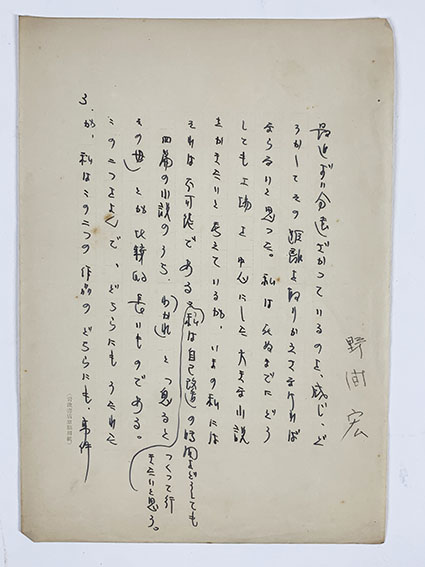 野間宏
最近ずい分遠ざかっているのを、感じ、ど
うかしてその距離を取りかえさなければ
ならないと思った。私は死ぬまでにどう
しても工場を中心にした大きな小説
をかきたいと考えているが、いまの私には
それは不可能である。私は自己改造の時間をどうしても
つくって行
きたいと思う。
四篇の小説のうち、「わかれ」と「
その母」とが比較的長いものである。
この二つをよんで、どちらにもうたれた
が、私はこの二つの作品のどちらにも、事件